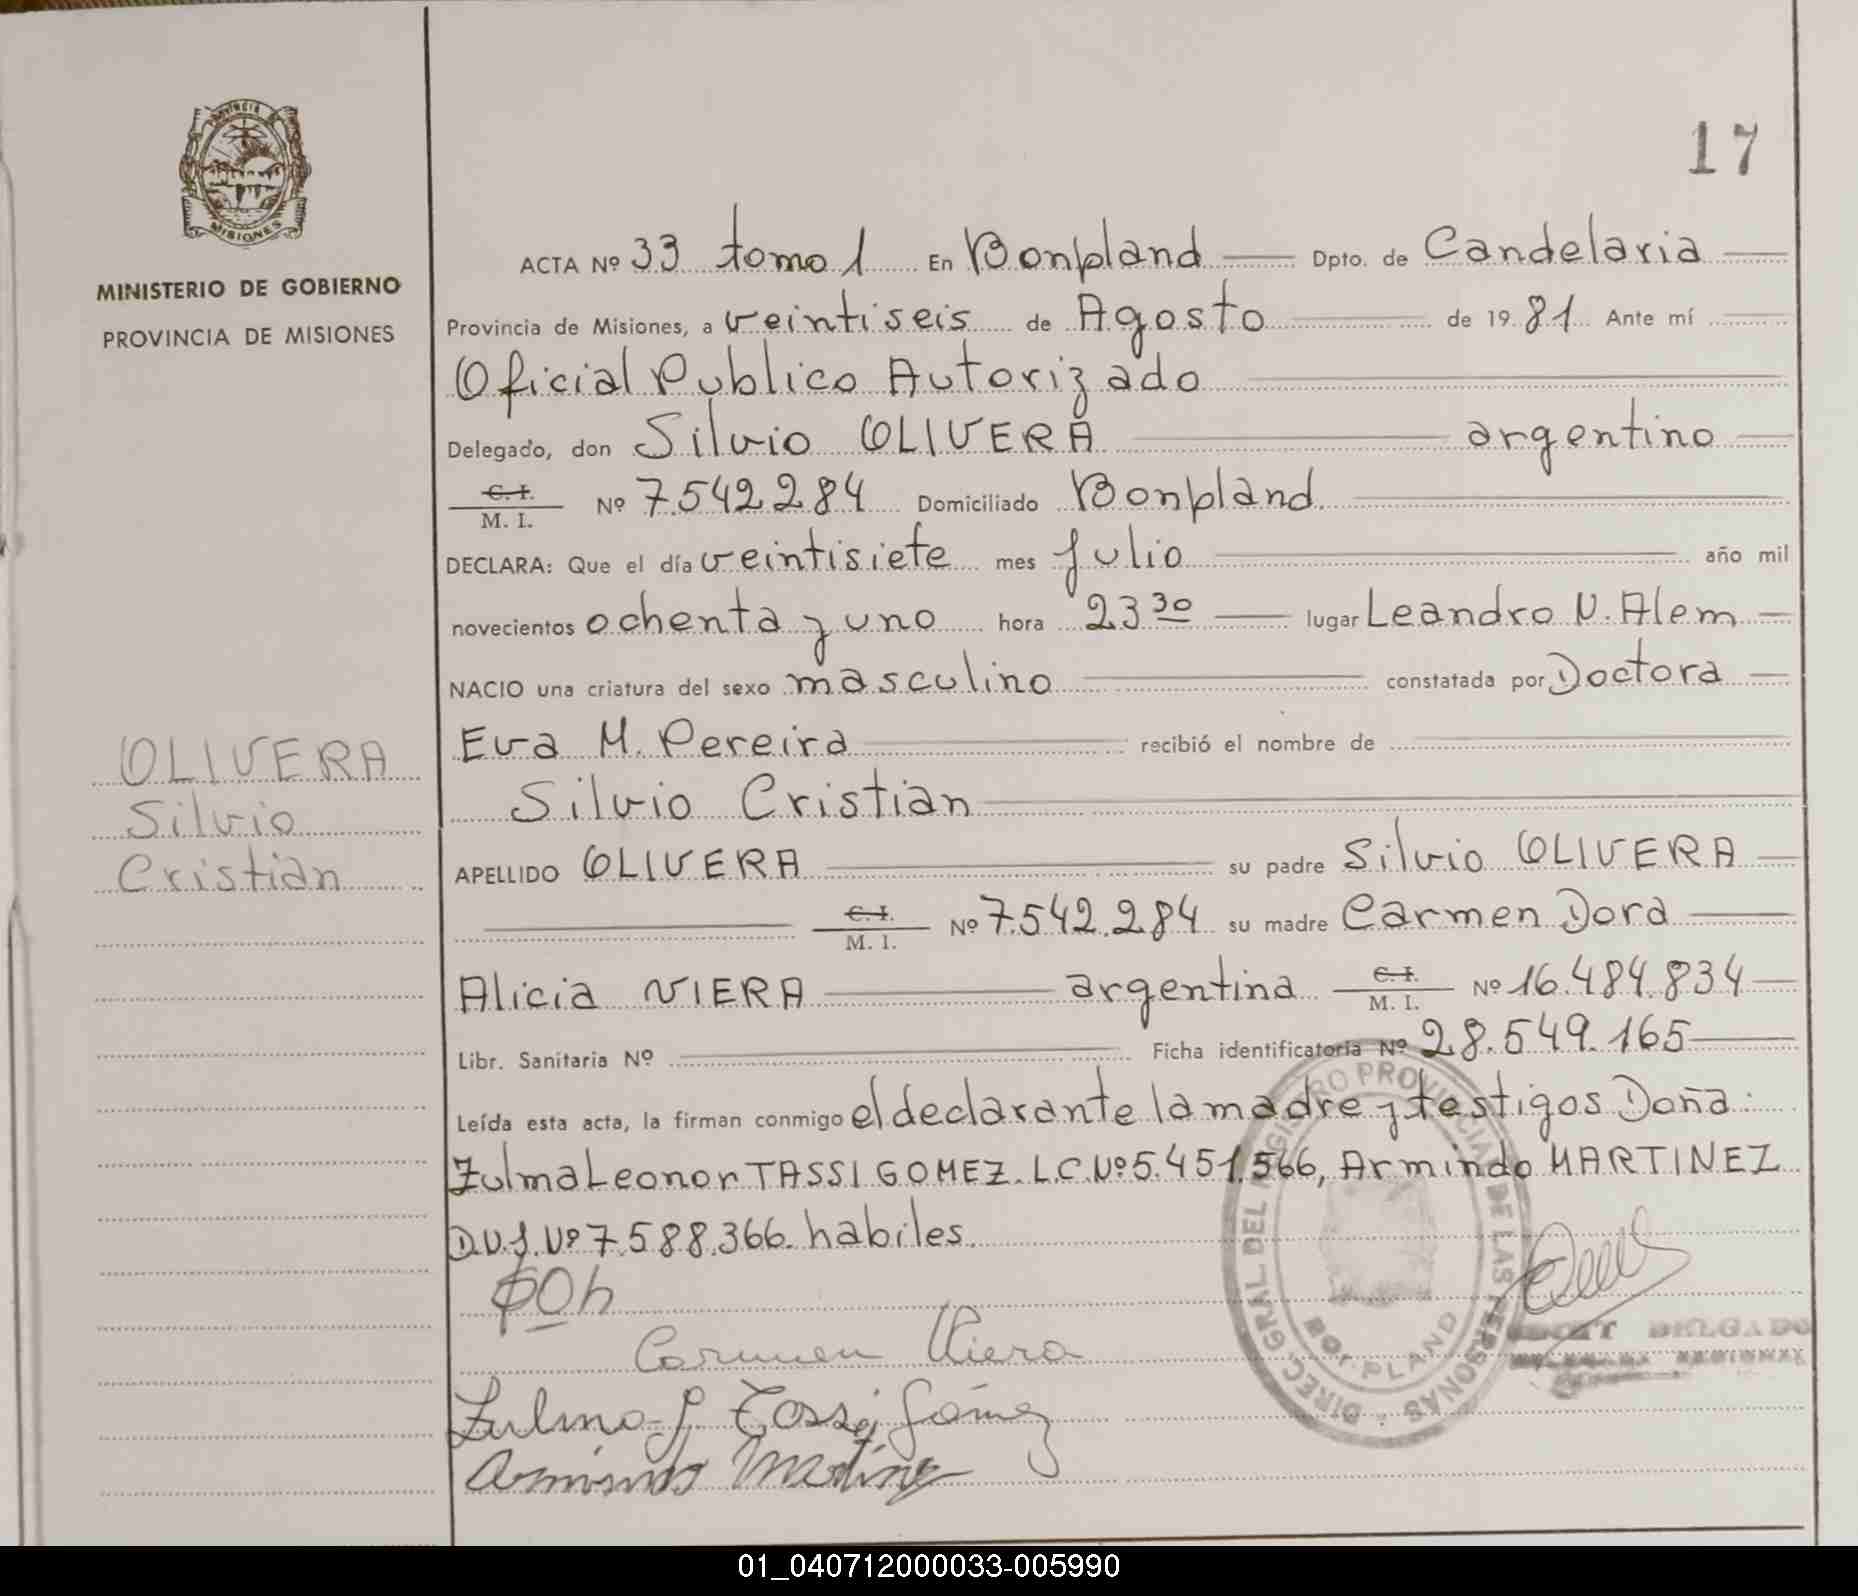 PROVINCIA DE
MISIONES
MINISTERIO DE GOBIERNO
PROVINCIA DE MISIONES
OLIVERA
Silvio
Cristian
17
ACTA Nº 33 tomo 1 En Bonpland Dpto. de Candelaria
Provincia de Misiones, a veintiseis de Agosto de 1981 Ante mí
Oficial Publico Autorizado
Delegado, don Silvio OLIVERA argentino
C. I. / M. I. Nº 7.542.284 Domiciliado Bonpland.
DECLARA: Que el día veintisiete mes Julio año mil
novecientos ochenta y uno hora 23 30 lugar Leandro N. Alem
NACIO una criatura del sexo masculino constatada por Doctora
Eva M. Pereira recibió el nombre de
Silvio Cristian
APELLIDO OLIVERA su padre Silvio OLIVERA
C. I. / M. I. Nº 7.542.284 su madre Carmen Dora
Alicia VIERA argentina C. I. / M. I. Nº 16.484.834
Libr. Sanitaria Nº Ficha identificatoria Nº 28.549.165
Leída esta acta, la firman conmigo el declarante la madre y testigos Doña:
Zulma Leonor TASSI GOMEZ. L.C. Nº 5.451.566, Armindo MARTINEZ
D.N.I. Nº 7.588.366. habiles.
Carmen Viera
Zulma L. Tassi Gómez
Armindo Martinez
DIREC. GRAL DEL REGISTRO PROVINCIAL DE LAS PERSONAS
BONPLAND
DELGADO
01_040712000033-005990